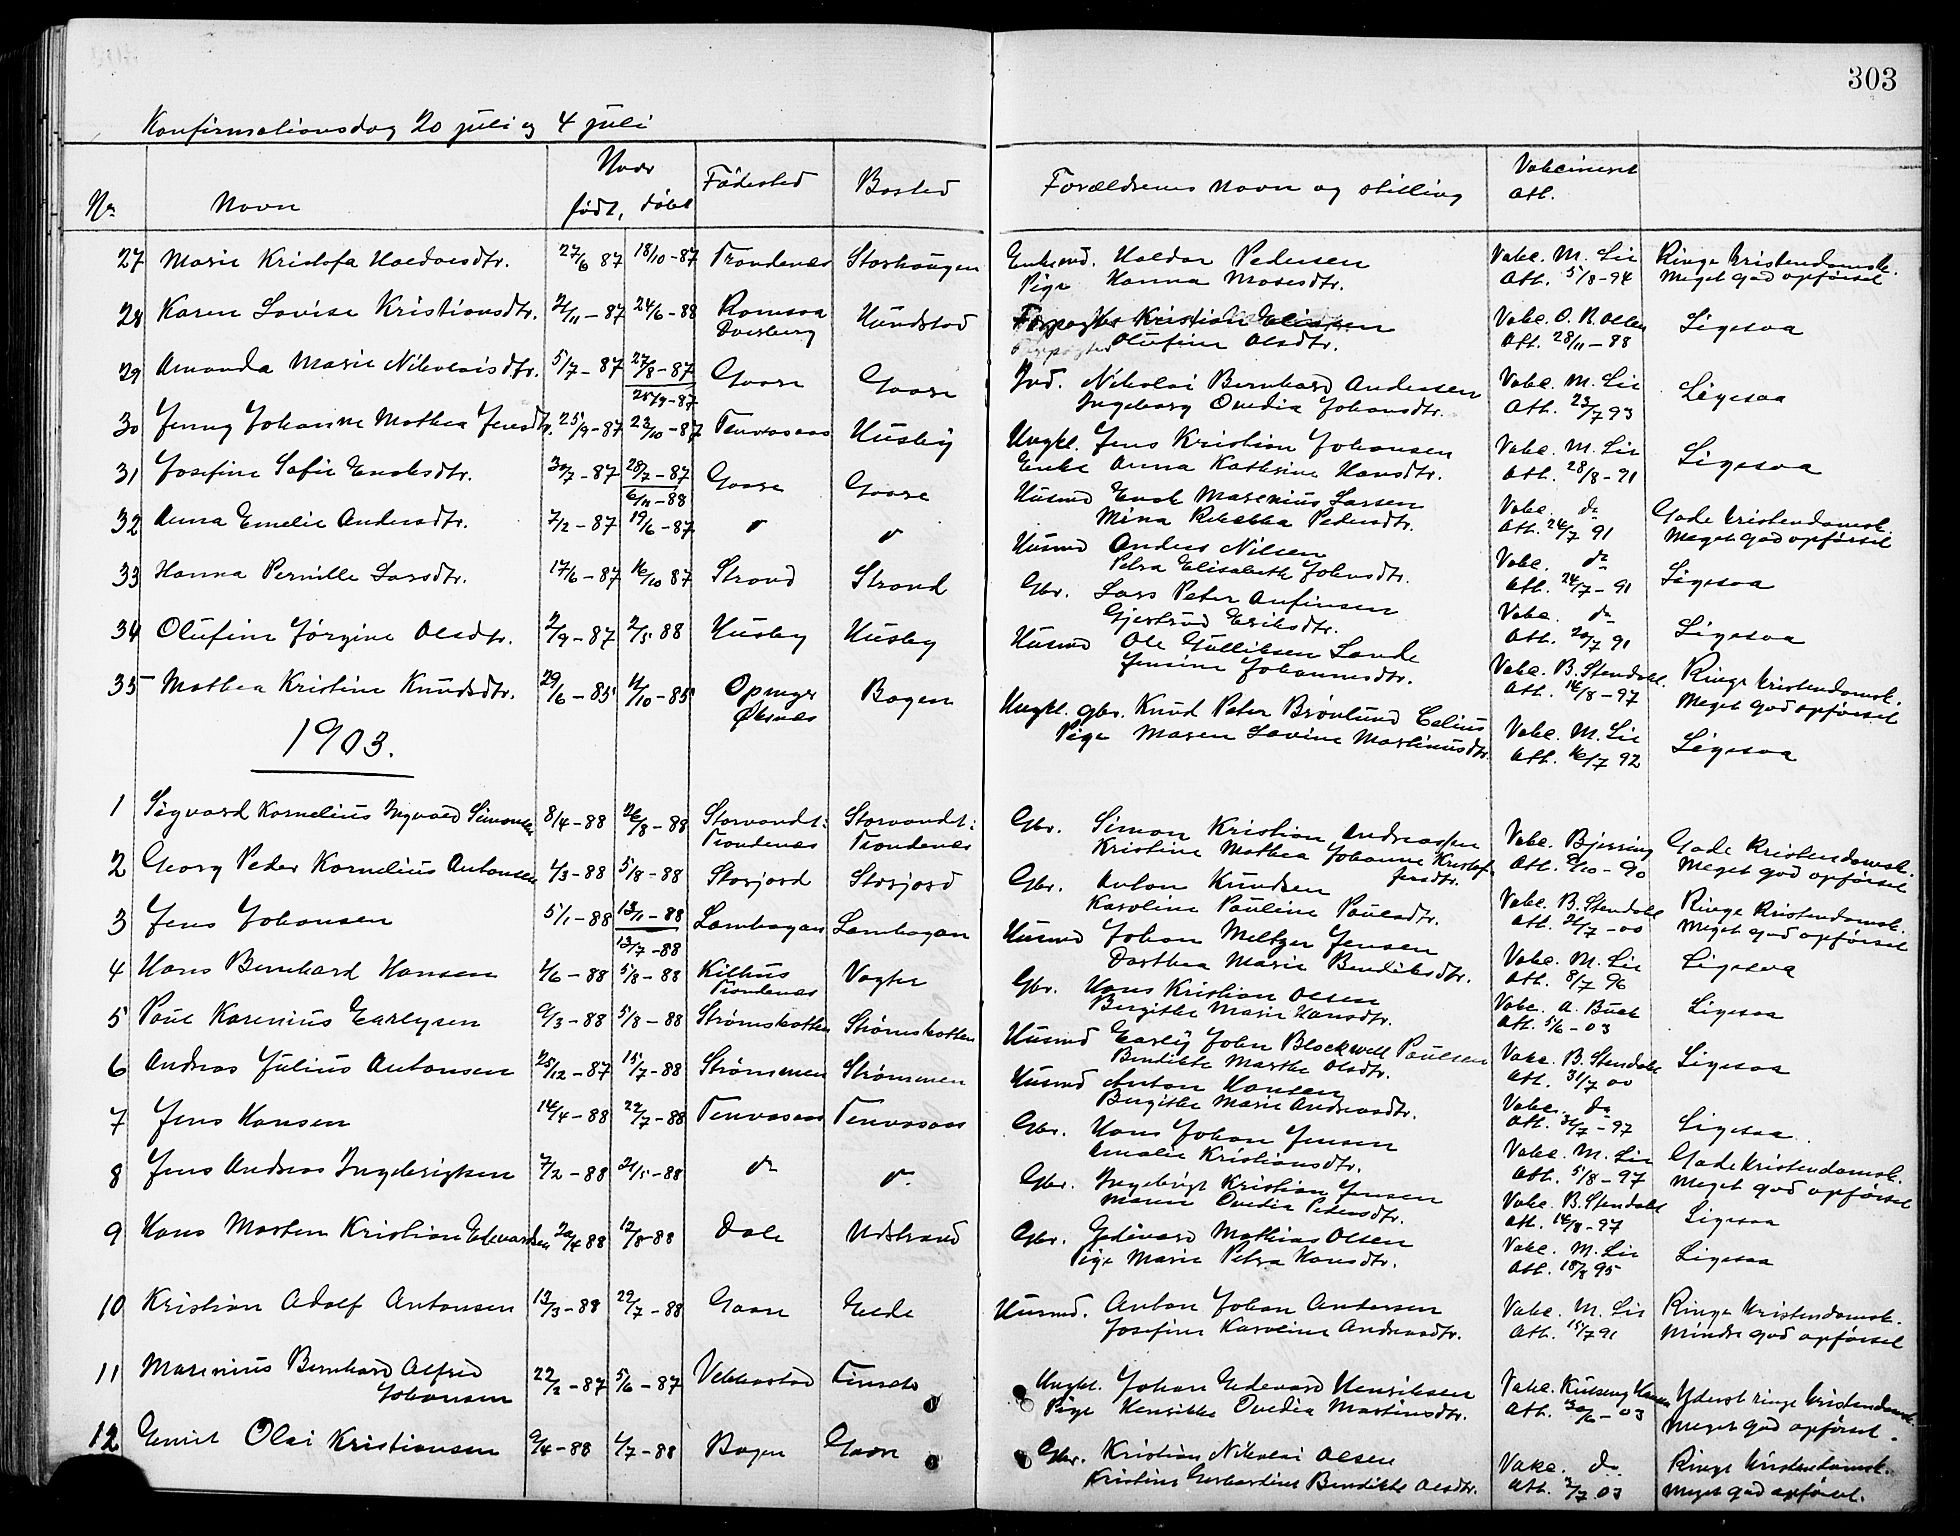 303
Konfirmationsdag 20 juli og 4 juli
Nr Navn Naar født, døbt Fødested Bosted Forældrenes navn og stilling Vakcineret Att.
27 Marie Kristofa Haldorsdtr. 27/6 87 18/10-87 Trondenes Storhaugen Enkemd. Haldor Pedersen Vakc. M. Lie Ringe Kristendomsk.
Pige Hanna Mosesdtr. Att. 5/8-94 Meget god opførsel
28 Karen Lovise Kristiansdtr. 21/11-87 24/6-88 Ramsaa Dverberg Hundstad Forpagter Kristian Eliassen Vakc. O. N. Olsen Ligesaa
Olufine Olsdtr. Att. 28/11-88
29 Amanda Marie Nikolaisdtr. 5/7-87 27/8-87 Gaare Gaare Ind. Nikolai Bernhard Andersen Vakc. M. Lie Ligesaa
25/9-87 Ingeborg Ovedia Johansdtr. Att. 23/7 93
30 Jenny Johanne Mathea Jensdtr. 25/9-87 23/10-87 Tennevaas Husby Ungkl. Jens Kristian Johansen Vakc. M. Lie Ligesaa
Enke Anna Kathrine Hansdtr. Att. 28/8-91
31 Josefine Sofie Enoksdtr. 30/7-87 28/7-87 Gaare Gaare Husmd Enok Marenius Larsen Vakc. do Gode Kristendomsk.
6/11-88 Mina Rebekka Pedersdtr. Att. 24/7 91 Meget god opførsel
32 Anna Emelie Andersdtr. 7/2-87 19/6-87 " " Husmd Anders Nilsen Vakc. do Ligesaa
Petra Elisabeth Johnsdtr. Att. 24/7-91
33 Hanna Pernille Larsdtr. 17/6-87 16/10 87 Strand Strand Gbr. Lars Peter Anfinsen Vakc. do Ligesaa
Gjertrud Eriksdtr. Att. 20/7 91
34 Olufine Jørgine Olsdtr. 2/9-87 2/5 88 Husby Husby Husmd Ole Gulliksen Lande Vakc. B. Stendahl. Ringe Kristendomsk.
Jensine Johannesdtr. Att. 14/8-97 Meget god opførsel
35 Mathea Kristine Knudsdtr. 29/6-85 11/10-85 Øksnes Bogen Ungkl. gbr. Knud Peter Brønlund Celius Vakc. M. Lie Ligesaa
Pige Maren Lovine Martinusdtr. Att. 16/7 92
1903.
1 Sigvard Kornelius Ingvald Simonsen 8/4-88 26/8-88 Storvandet: Trondenes Storvandet: Trondenes Gbr. Simon Kristian Andreassen Vakc. Bjerring Gode Kristendomsk.
Kristine Mathea Johanne Kristofersdtr. Att. 2/10-90 Meget god opførsel
2 Georg Peder Kornelius Antonsen 4/3-88 5/8-88 Storjord Storjord Gbr. Anton Knudsen Vakc. B. Stendahl Ringe Kristendomsk.
Karoline Pauline Paulsdtr. Att. 21/7-00 Meget god opførsel
3 Jens Johansen 5/1-88 13/1-88 Sandbogen Sandbogen Husmd Johan Meltzer Jensen Vakc. M. Lie Ligesaa
13/7-88 Dorthea Marie Bendiksdtr. Att. 8/7 96
4 Hans Bernhard Hansen 4/6-88 5/8-88 Kilhus Trondenes Vogter Gbr. Hans Kristian Olsen Vakc. A. Buch Ligesaa
Bergitte Marie Hansdtr. Att. 5/6-03
5 Paul Karenius Earlysen 9/3-88 5/8-88 Strømsbotten Strømsbotten Husmd Early John Blackwell Paulsen Vakc. B. Stendahl Ligesaa
Bendikte Marthe Olsdtr. Att. 31/7 00
6 Andreas Julius Antonsen 25/12-87 15/7-88 Strømmen Strømmen Husmd Anton Hansen Vakc. do Ligesaa
Bergitte Marie Andreasdtr. Att. 31/7-97
7 Jens Hansen 14/4-88 22/7-88 Tennevaas Tennevaas Gbr. Hans Johan Jensen Vakc. M. Lie Gode Kristendomsk.
Amalie Kristiansdtr. Att. 5/8-97 Meget god opførsel
8 Jens Andreas Ingebrigtsen 7/2-88 21/5-88 do " Gbr. Ingebrigt Kristian Jensen Vakc. B. Stendahl Ligesaa
Maren Ovedia Pedersdtr. Att. 14/8-97
9 Hans Morten Kristian Edvardsen 20/4 88 12/8-88 Dale Utstrand Gbr. Edevard Mathias Olsen Vakc. M. Lie Ligesaa
Pige Marie Petra Hansdtr. Att. 18/8 95
10 Kristian Adolf Antonsen 13/3-88 22/7-88 Gaare Elde Husmd. Anton Johan Andersen Vakc. M. Lie Ringe Kristendomsk.
Josefine Karoline Andreasdtr. Att. 15/7 91 Mindre god opførsel
11 Marenius Bernhard Alfred Johansen 22/2-87 5/6-87 Vebbostad Ungkl. Johan Edevard Henriksen Vakc. Yderst ringe Kristendomsk.
Pige Henrikke Ovedia Martinsdtr. Att. 30/6-03 Meget god opførsel.
12 Emil Olai Kristiansen 9/4-88 4/7-88 Bogen Gaare Gbr. Kristian Nikolai Olsen Vakc. do. Ringe Kristendomsk.
Kristine Gerhardine Bendikte Olsdtr. Att. 2/7 03 Meget god opførsel.